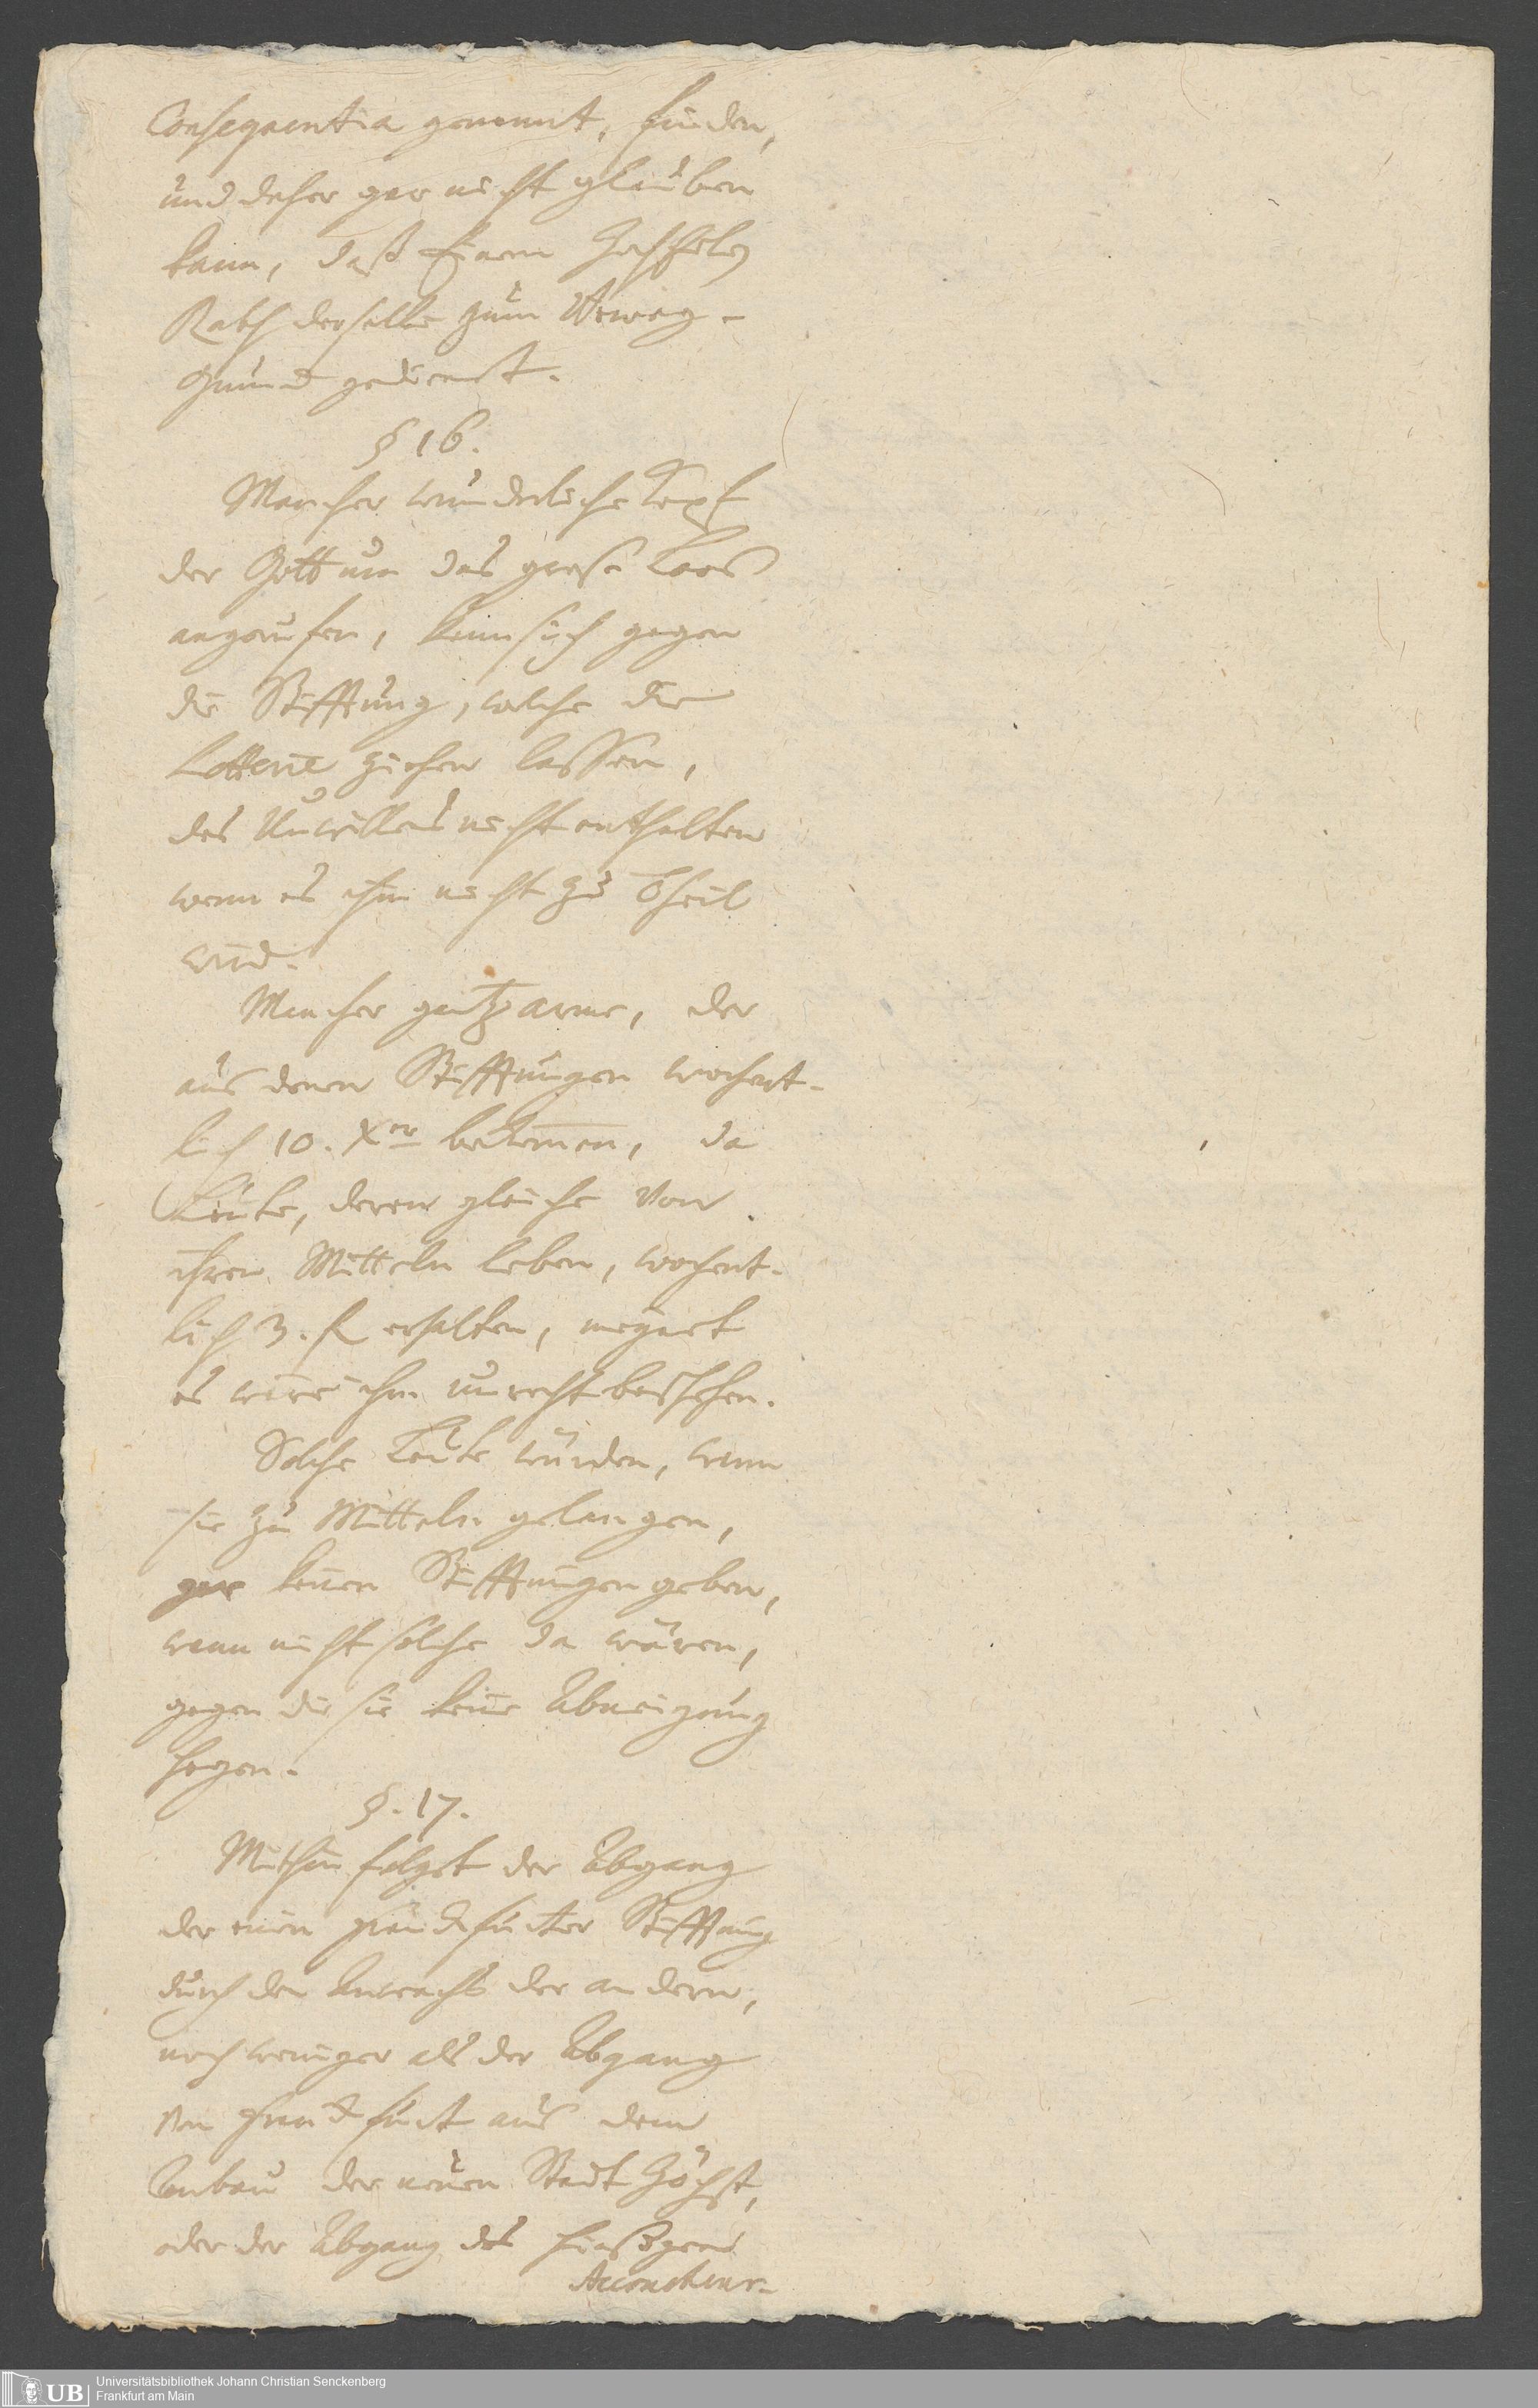 Consequentia genennt, finden,
und daher gar nicht glauben
kann, daß Einem Hochedlen
Rath derselbe zum Beweg-
Grund gedienet.
§ 16.
Mancher wunderliche Kopf
der Gott um das große Loos
angerufen, kann sich gegen
die Stifftung, welche die
Lotterie ziehen lassen,
des Unwillens nicht enthalten
wenn es ihm nicht zu Theil
wird.
Mancher arme, der
aus denen Stifftungen wochent-
lich 10. Xer bekommen, da
Leute, deren gleiche von
ihren Mitteln leben, wochent-
lich 3. fl erhalten, meynet
es wäre ihm unrecht beschehen.
Solche Leute würden, wenn
sie zu Mitteln gelangen,
gar keinen Stifftungen geben,
wenn nicht solche da wären,
gegen die sie keine Abneigung
hegen.
§. 17.
Mithin folget der Abgang
der einen Franckfurter Stifftung
durch den Anwachs der andern,
noch weniger als der Abgang
von Franckfurt aus dem
Anbau der neuen Stadt Höchst,
oder der Abgang des hießigen
Accoucheur-
Universitätsbibliothek Johann Christian Senckenberg
Frankfurt am Main
UB